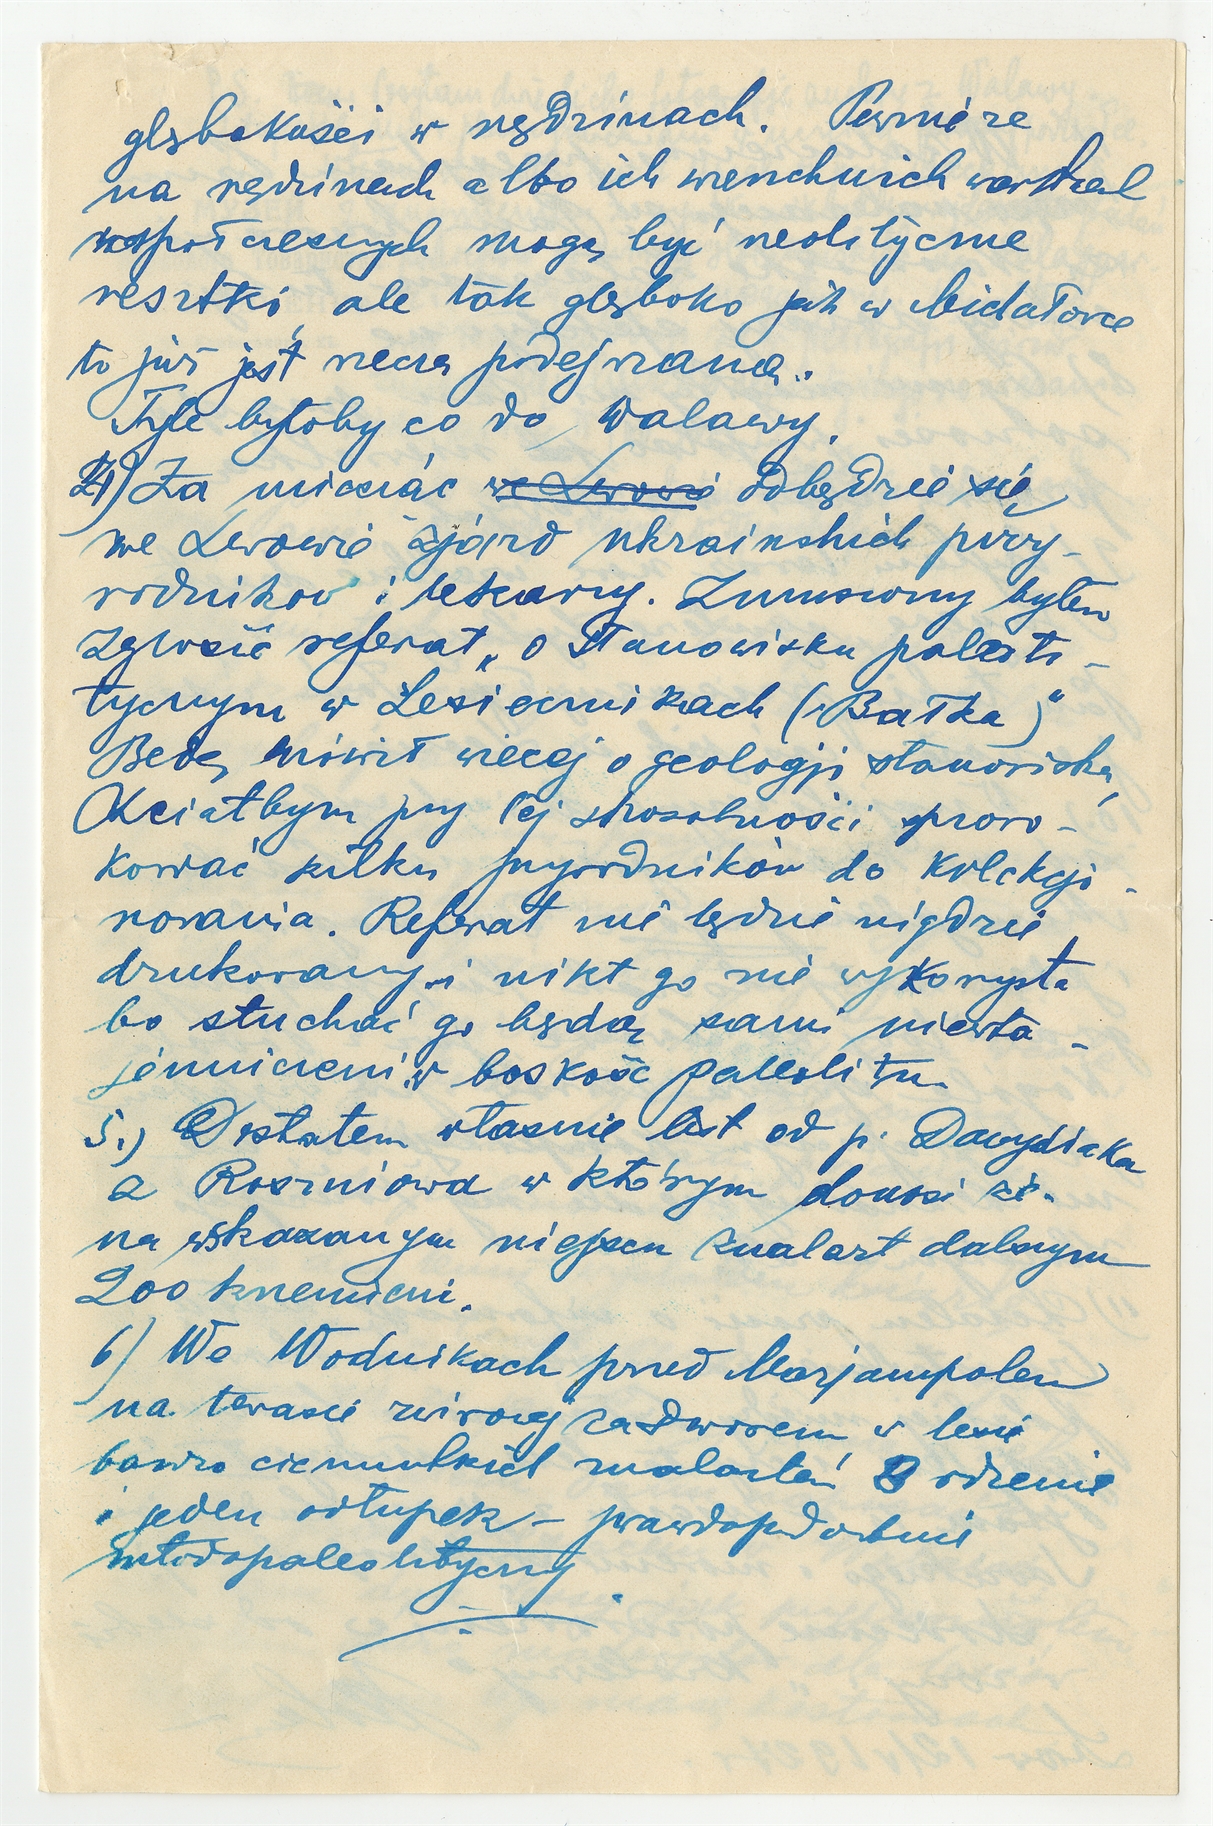 głębokości w rędzinach. Pewnie że
na rędzinach albo ich wierzchnich warstwach
współczesnych mogą być neolityczne
resztki, ale tak głęboko jak w
to już jest rzeczą podejrzaną.
Tyle byłoby co do Walawy.
4) Za miesiąc we Lwowie odbędzie się
we Lwowie zjazd ukrainskich przy-
rodnikow i lekarzy. Zmuszony byłem
zgłosić referat „o Stanowisku paleoli-
tycznym w Lesienickach („Batka”)"
Bedę mówił wiecej o geologji stanowiska,
Chciałbym przy tej sposobności sprowo-
kować kilku przyrodników do kolekcjo-
nowania. Referat nie będzie nigdzie
drukowany i nikt go nie wykorzysta
bo słuchać go będą sami niewta-
jemniczeni w boskość paleolitu.
5.) Dostałem własnie list od p. Dawydiaka
z Rozniowa w którym donosi że
na wskazanym miejscu znalazł dalszych
200 krzemieni.
6) We Wodnikach przed Marjampolem
na terasie żwirowej za dworem w lesie
bardzo cieniutkich znalazłem 3 rdzenie
i jeden odłupek – prawdopodobnie
młodopaleolityczny.